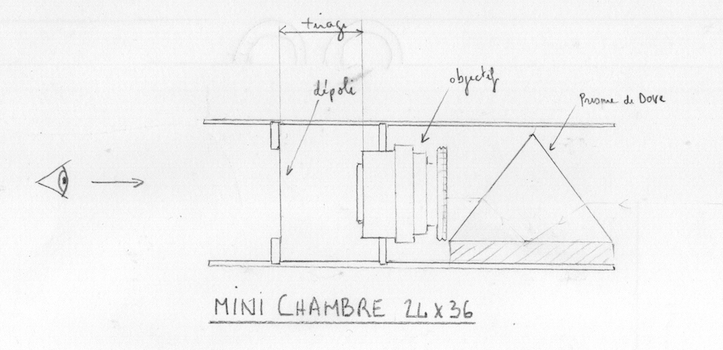 tirage
dépoli
objectif
Prisme de Dove
MINI CHAMBRE 24x36